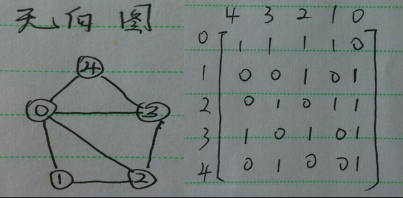 无向图
4
0
3
1
2
4 3 2 1 0
0 1 1 1 1 0
1 0 0 1 0 1
2 0 1 0 1 1
3 1 0 1 0 1
4 0 1 0 0 1